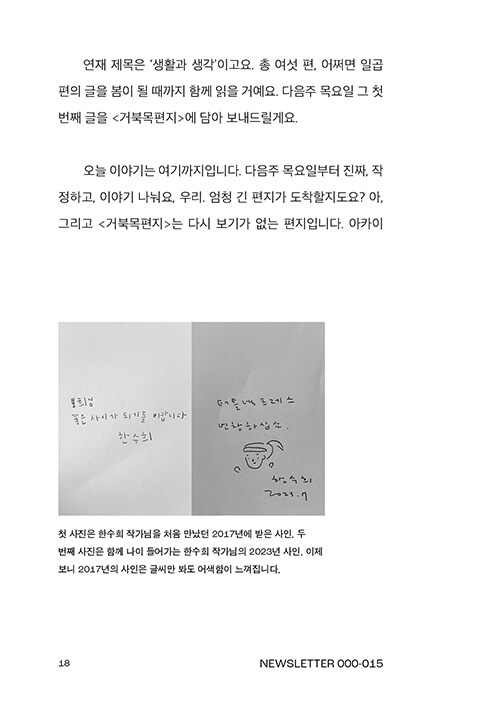 연재 제목은 ‘생활과 생각’이고요. 총 여섯 편, 어쩌면 일곱
편의 글을 봄이 될 때까지 함께 읽을 거예요. 다음주 목요일 그 첫
번째 글을 <거북목편지>에 담아 보내드릴게요.
오늘 이야기는 여기까지입니다. 다음주 목요일부터 진짜, 작
정하고, 이야기 나눠요, 우리. 엄청 긴 편지가 도착할지도요? 아,
그리고 <거북목편지>는 다시 보기가 없는 편지입니다. 아카이
보희님
좋은 사이가 되기를 바랍니다
한수희
터틀넥프레스
번창하십쇼.
한수희
2023.9
첫 사진은 한수희 작가님을 처음 만났던 2017년에 받은 사인. 두
번째 사진은 함께 나이 들어가는 한수희 작가님의 2023년 사인. 이제
보니 2017년의 사인은 글씨만 봐도 어색함이 느껴집니다.
18
NEWSLETTER 000-015